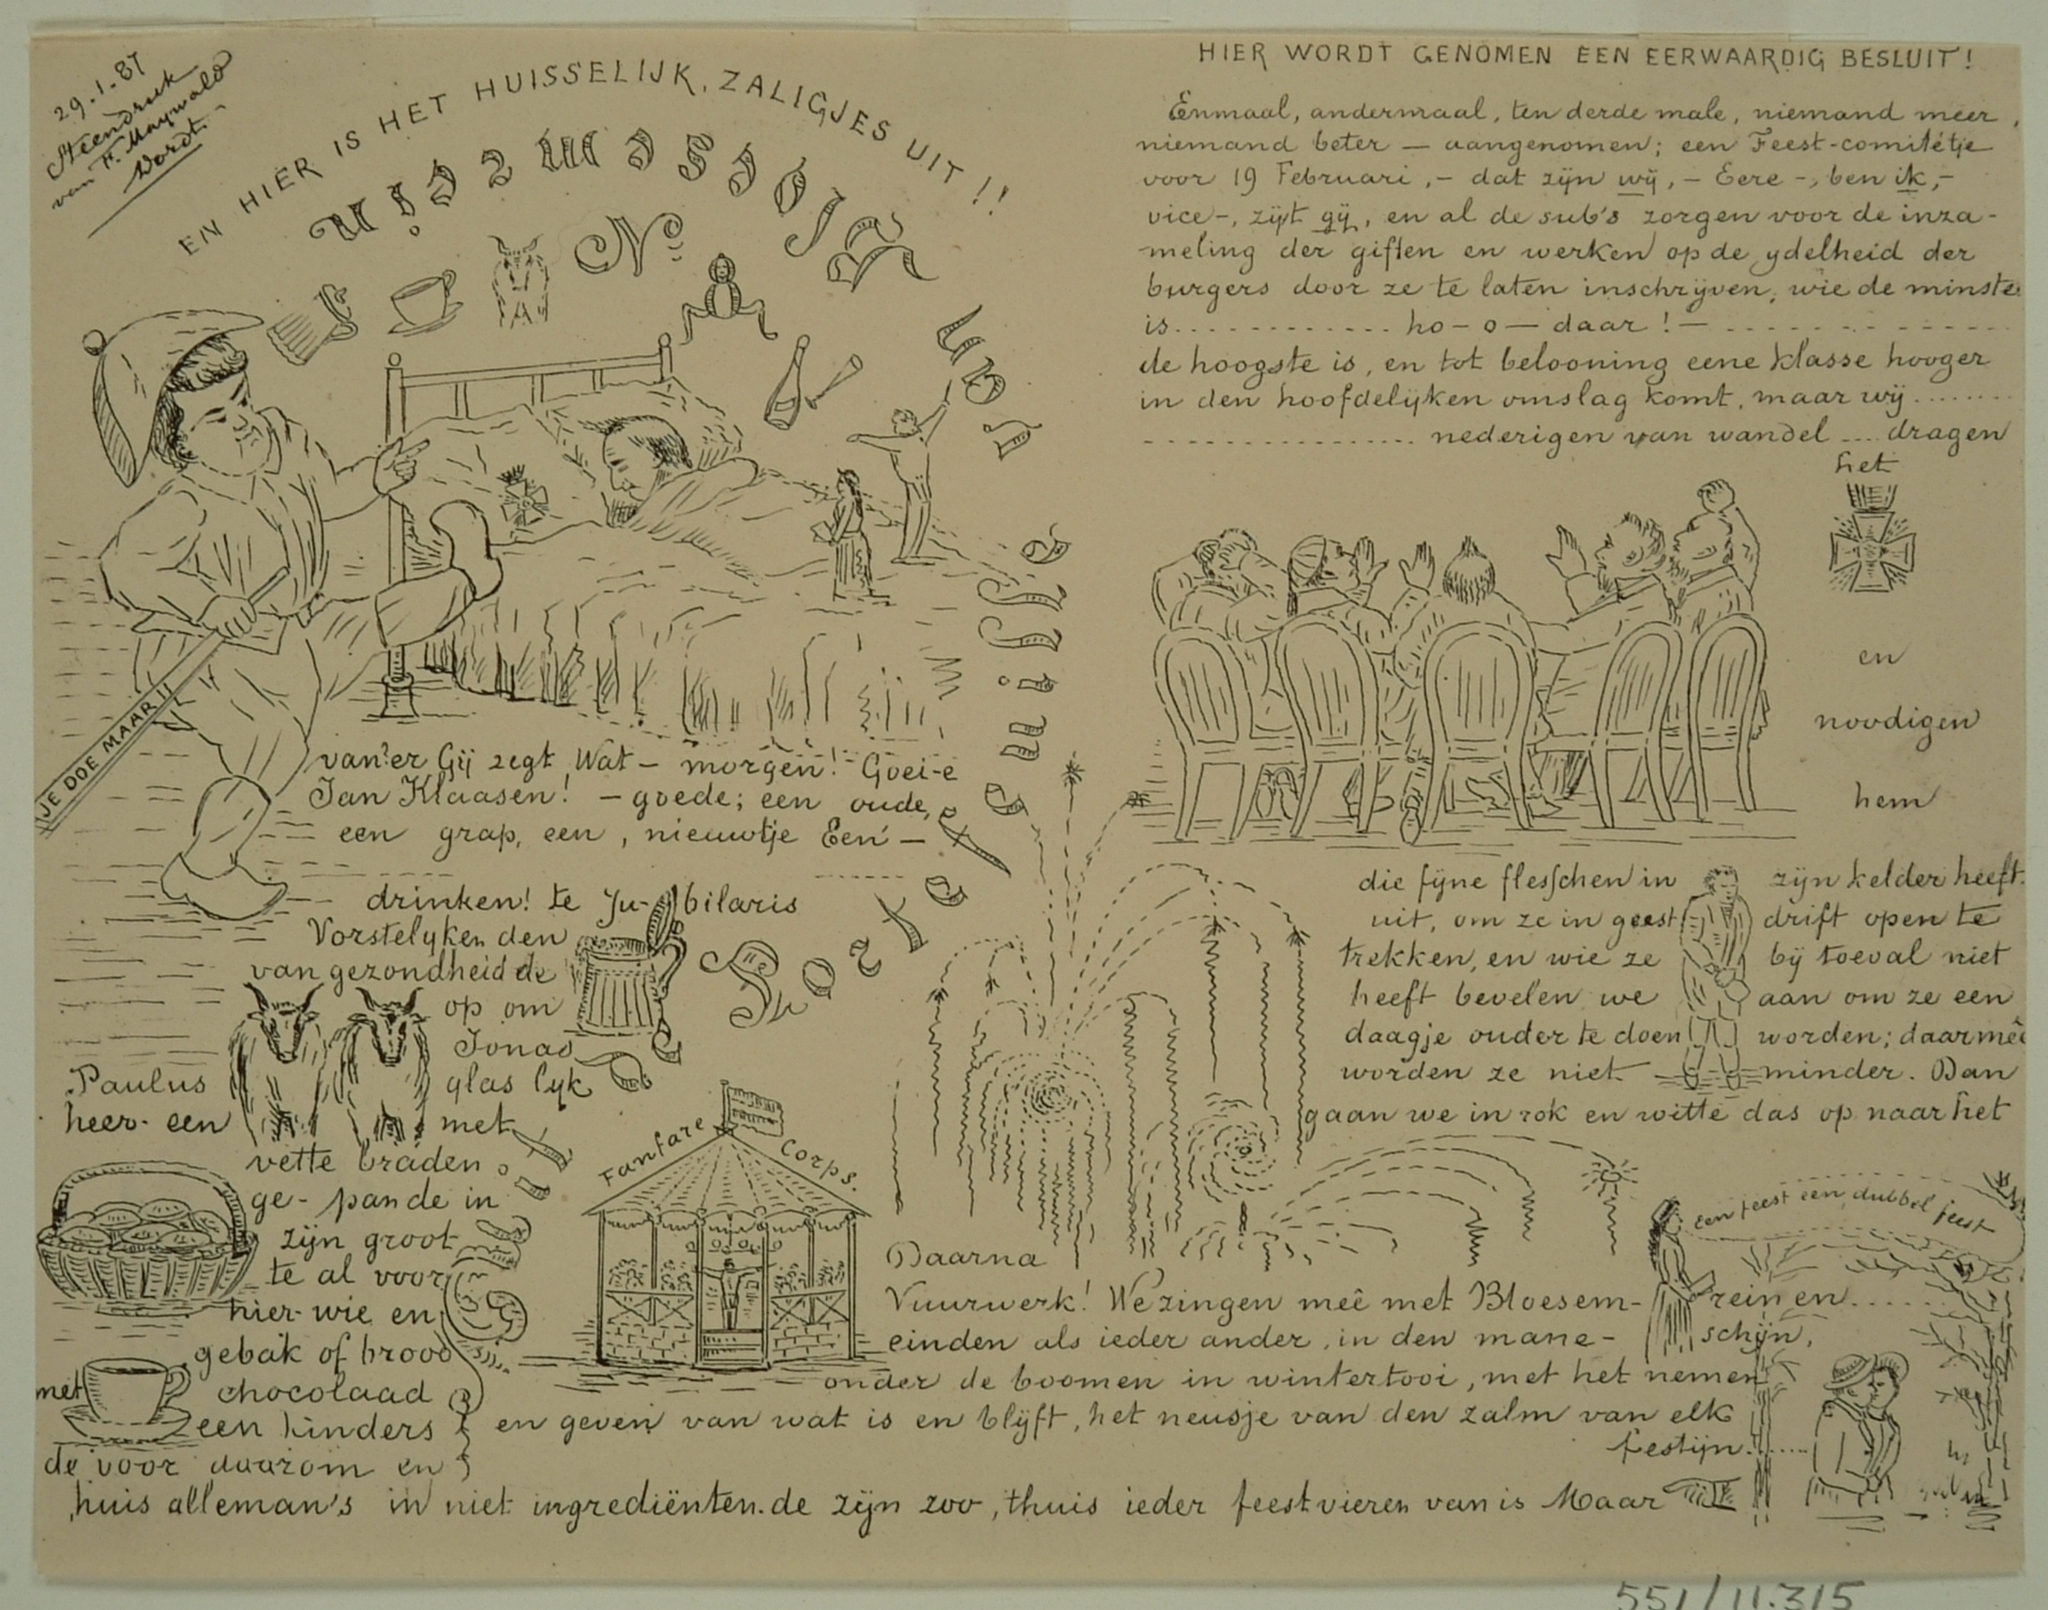 29.1.87
Steendruk
van F. Maywald
Dordt.
EN HIER IS HET HUISSELIJK, ZALIGJES UIT!!
No
JE DOE MAAR!!
van?er Gij zegt, Wat — morgen! Goei-e
Jan Klaasen! — goede; een oude,
een grap, een, nieuwtje Een —
drinken! te Ju- bilaris
Vorstelyken den
van gezondheid de
op om
Jonas
Paulus glas lyk
heer- een met
vette braden
ge- pan de in
zijn groot
te al voor
hier- wie en
gebak of brood
met chocolaad
een kinders
de voor daarom en
huis alleman's in niet ingrediënten. de zijn zoo, thuis ieder feestvieren van is Maar
Fanfare Corps.
HIER WORDT GENOMEN EEN EERWAARDIG BESLUIT!
Eenmaal, andermaal, ten derde male, niemand meer,
niemand beter — aangenomen; een Feest-comitétje
voor 19 Februari, — dat zijn wij, — Eere -, ben ik, —
vice-, zijt gij, en al de sub's zorgen voor de inza-
meling der giften en werken op de ydelheid der
burgers door ze te laten inschrijven; wie de minste
is.............. ho — o — daar! — ..............
de hoogste is, en tot belooning eene klasse hooger
in den hoofdelijken omslag komt, maar wij........
................. nederigen van wandel .... dragen
het
en
noodigen
hem
die fijne flesschen in zijn kelder heeft
uit, om ze in geest drift open te
trekken, en wie ze bij toeval niet
heeft bevelen we aan om ze een
daagje ouder te doen worden; daarmêe
worden ze niet minder. Dan
gaan we in rok en witte das op naar het
een feest een dubbel feest
Daarna
Vuurwerk! We zingen meê met Bloesem- rein en......
einden als ieder ander, in den mane- schijn,
onder de boomen in wintertooi, met het nemen
en geven van wat is en blijft, het neusje van den zalm van elk
festijn.......
551/11.315